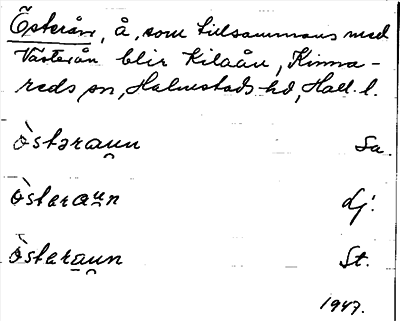 Österån, å, som tillsammans med
Västerån blir Kilaån, Kinna-
reds sn, Halmstads hd, Hall. l.
òstəraun Sa.
òsteraun dj.
òsteraun St.
1947.